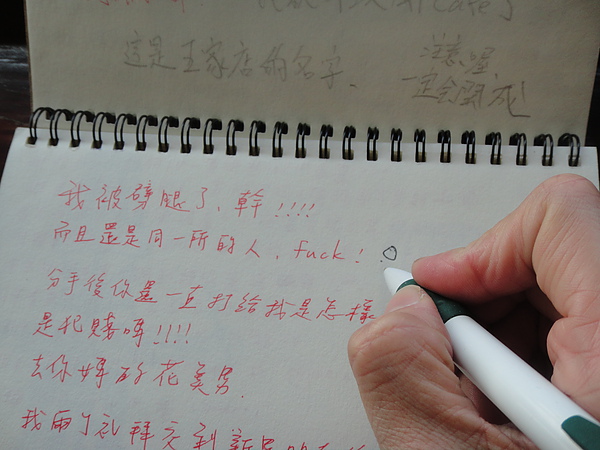 這是王家店的名字、
注意喔
一定會開成
我被劈腿了、幹!!!!
而且還是同一所的人、fuck!
分手後你還一直打給我是怎樣
是犯賤嗎!!!!
去你媽的花美男.
我兩个礼拜交到新